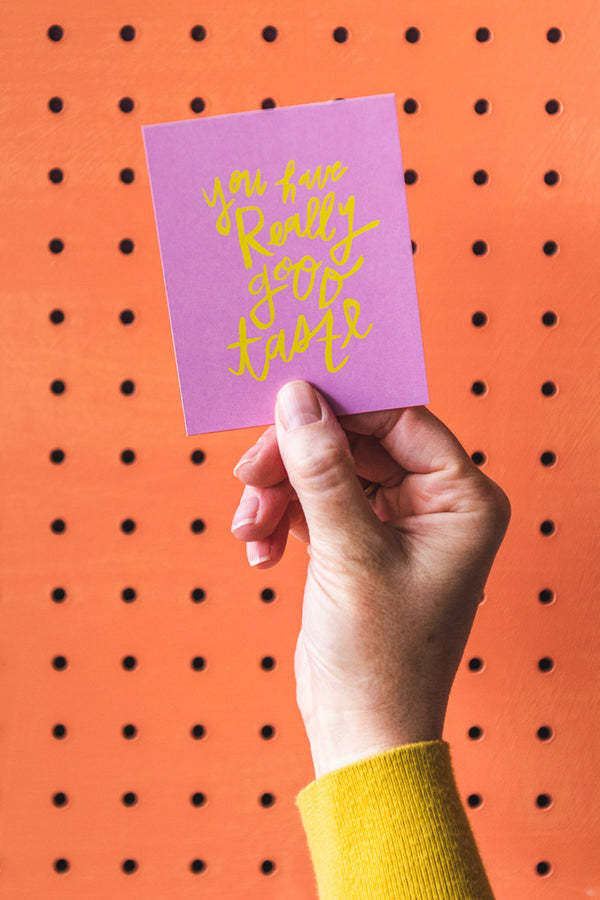 you have
Really
good
taste